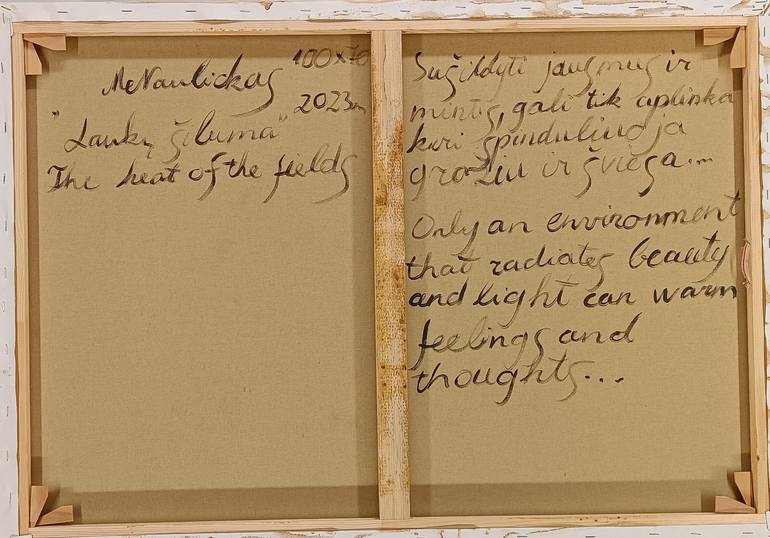 McNaulickas 100x70
2023m
"Laukų šiluma"
The heat of the fields
Sušildyti jausmus ir
mintis, gali tik aplinka
kuri spinduliuoja
grožiu ir šviesa...
Only an environment
that radiates beauty
and light can warm
feelings and
thoughts...